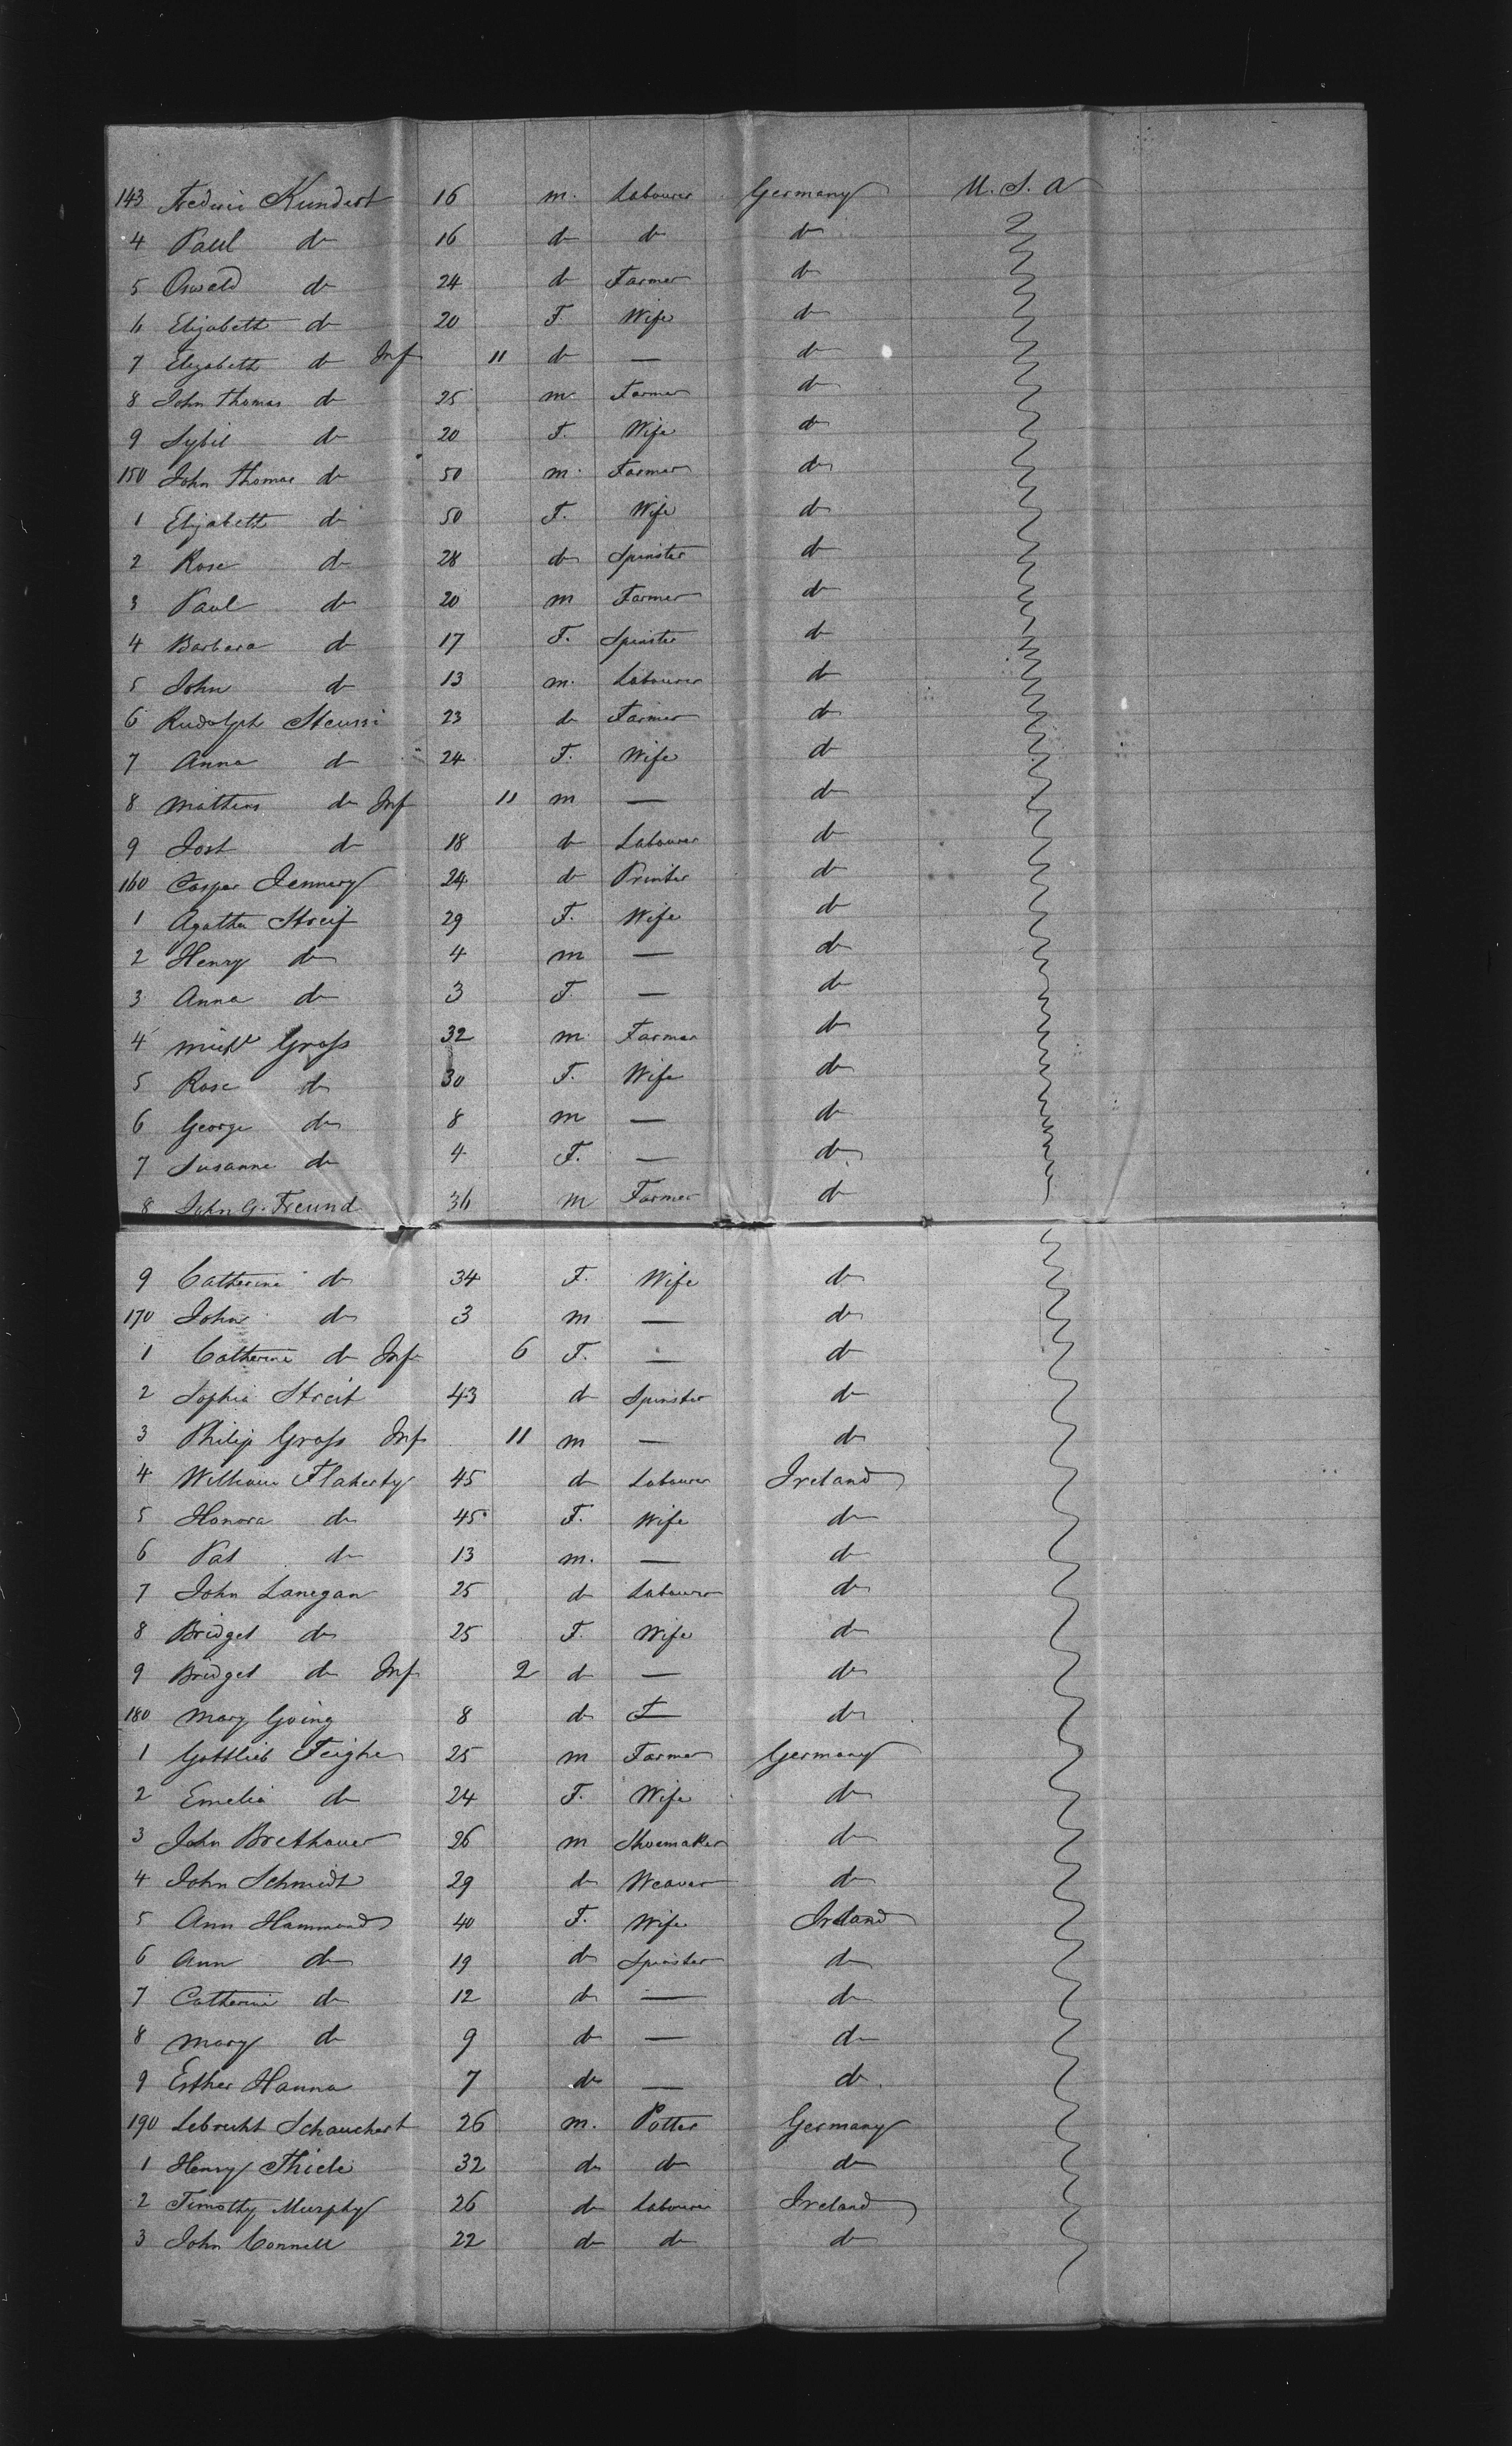 143 Frederic Kundert 16 m. Labourer Germany U.S.A
4 Paul do 16 do do do
5 Oswald do 24 do Farmer do
6 Elizabeth do 20 F. Wife do
7 Elizabeth do Inf 11 do — do
8 John Thomas do 25 m. Farmer do
9 Sybil do 20 F. Wife do
150 John Thomas do 50 m. Farmer do
1 Elizabeth do 50 F. Wife do
2 Rose do 28 do Spinster do
3 Paul do 20 m Farmer do
4 Barbara do 17 F. Spinster do
5 John do 13 m. Labourer do
6 Rudolph Steussi 23 do Farmer do
7 Anna do 24 F. Wife do
8 Mathias do Inf 11 m — do
9 Jost do 18 do Labourer do
160 Casper Jennery 24 do Printer do
1 Agatha Streif 29 F. Wife do
2 Henry do 4 m — do
3 Anna do 3 F. — do
4 Gross 32 m. Farmer do
5 Rose do 30 F. Wife do
6 George do 8 m — do
7 Susanne do 4 F. — do
8 John G. Freund 36 m Farmer do
9 Catherine do 34 F. Wife do
170 John do 3 m — do
1 Catherine do Inf 6 F. — do
2 Sophia Streit 43 do Spinster do
3 Philip Gross Inf 11 m — do
4 William Flaherty 45 do Labourer Ireland
5 Honora do 45 F. Wife do
6 Pat do 13 m. — do
7 John Lanegan 25 do Labourer do
8 Bridget do 25 F. Wife do
9 Bridget do Inf 2 do — do
180 Mary Going 8 do — do
1 Gottlieb Feighe 25 m Farmer Germany
2 Emelia do 24 F. Wife do
3 John Brethauer 26 m Shoemaker do
4 John Schmidt 29 do Weaver do
5 Ann Hammond 40 F. Wife Ireland
6 Ann do 19 do Spinster do
7 Catherine do 12 do — do
8 Mary do 9 do — do
9 Esther Hanna 7 do — do
190 Lebrecht Schauchert 26 m. Potter Germany
1 Henry Thiele 32 do do do
2 Timothy Murphy 26 do Labourer Ireland
3 John Connell 22 do do do